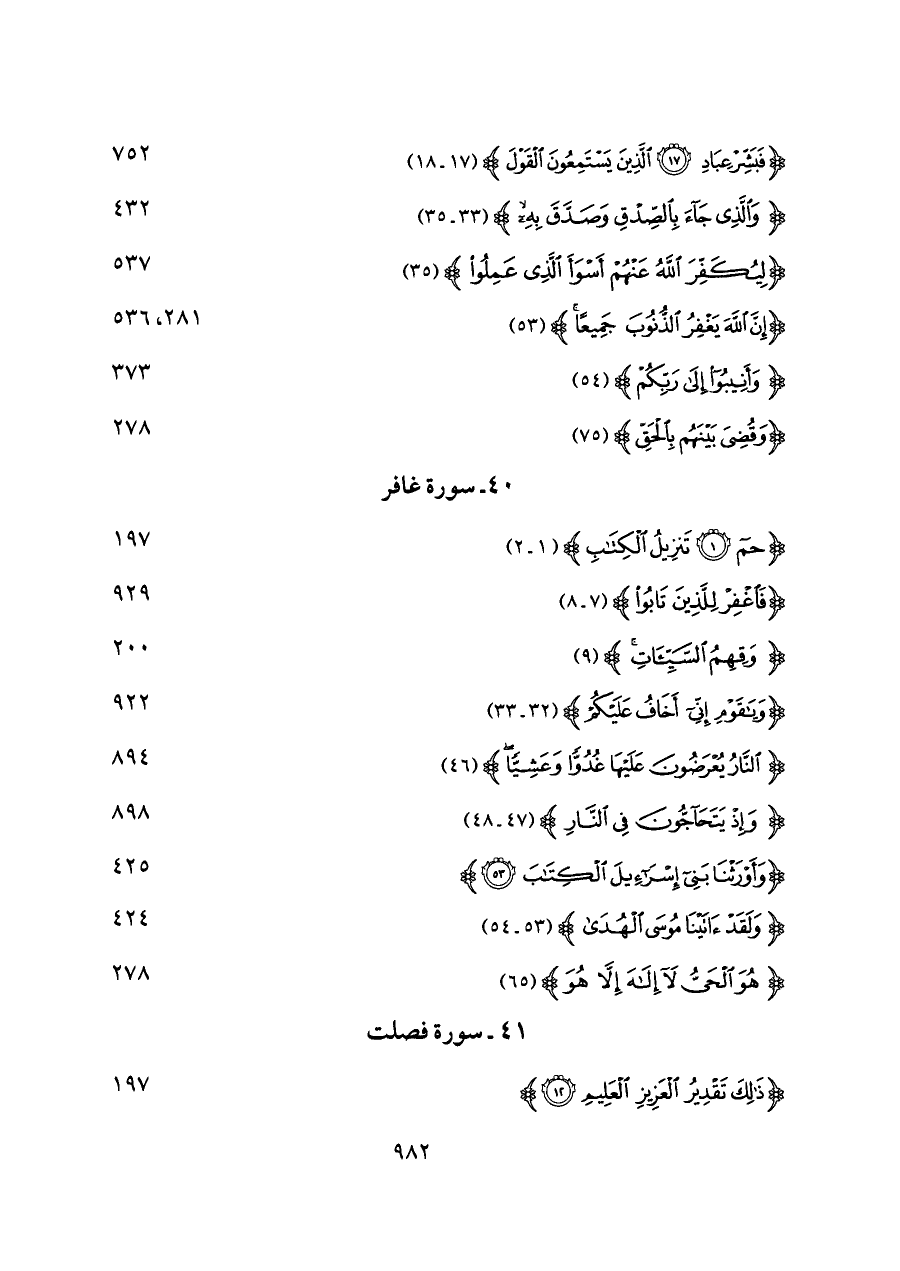 ﴿فَبَشِّرْ عِبَادِ ۝١٧ ٱلَّذِينَ يَسْتَمِعُونَ ٱلْقَوْلَ﴾ (١٧ـ١٨) ٧٥٢
﴿وَٱلَّذِى جَآءَ بِٱلصِّدْقِ وَصَدَّقَ بِهِۦۙ﴾ (٣٣ـ٣٥) ٤٣٢
﴿لِيُكَفِّرَ ٱللَّهُ عَنْهُمْ أَسْوَأَ ٱلَّذِى عَمِلُوا۟﴾ (٣٥) ٥٣٧
﴿إِنَّ ٱللَّهَ يَغْفِرُ ٱلذُّنُوبَ جَمِيعًاۚ﴾ (٥٣) ٢٨١، ٥٣٦
﴿وَأَنِيبُوٓا۟ إِلَىٰ رَبِّكُمْ﴾ (٥٤) ٣٧٣
﴿وَقُضِىَ بَيْنَهُم بِٱلْحَقِّ﴾ (٧٥) ٢٧٨
٤٠ـ سورة غافر
﴿حمٓ ۝١ تَنزِيلُ ٱلْكِتَٰبِ﴾ (١ـ٢) ١٩٧
﴿فَٱغْفِرْ لِلَّذِينَ تَابُوا۟﴾ (٧ـ٨) ٩٢٩
﴿وَقِهِمُ ٱلسَّيِّـَٔاتِۚ﴾ (٩) ٢٠٠
﴿وَيَٰقَوْمِ إِنِّىٓ أَخَافُ عَلَيْكُمْ﴾ (٣٢ـ٣٣) ٩٢٢
﴿ٱلنَّارُ يُعْرَضُونَ عَلَيْهَا غُدُوًّا وَعَشِيًّاۖ﴾ (٤٦) ٨٩٤
﴿وَإِذْ يَتَحَآجُّونَ فِى ٱلنَّارِ﴾ (٤٧ـ٤٨) ٨٩٨
﴿وَأَوْرَثْنَا بَنِىٓ إِسْرَٰٓءِيلَ ٱلْكِتَٰبَ ۝٥٣﴾ ٤٢٥
﴿وَلَقَدْ ءَاتَيْنَا مُوسَى ٱلْهُدَىٰ﴾ (٥٣ـ٥٤) ٤٢٤
﴿هُوَ ٱلْحَىُّ لَآ إِلَٰهَ إِلَّا هُوَ﴾ (٦٥) ٢٧٨
٤١ ـ سورة فصلت
﴿ذَٰلِكَ تَقْدِيرُ ٱلْعَزِيزِ ٱلْعَلِيمِ ۝١٢﴾ ١٩٧
٩٨٢